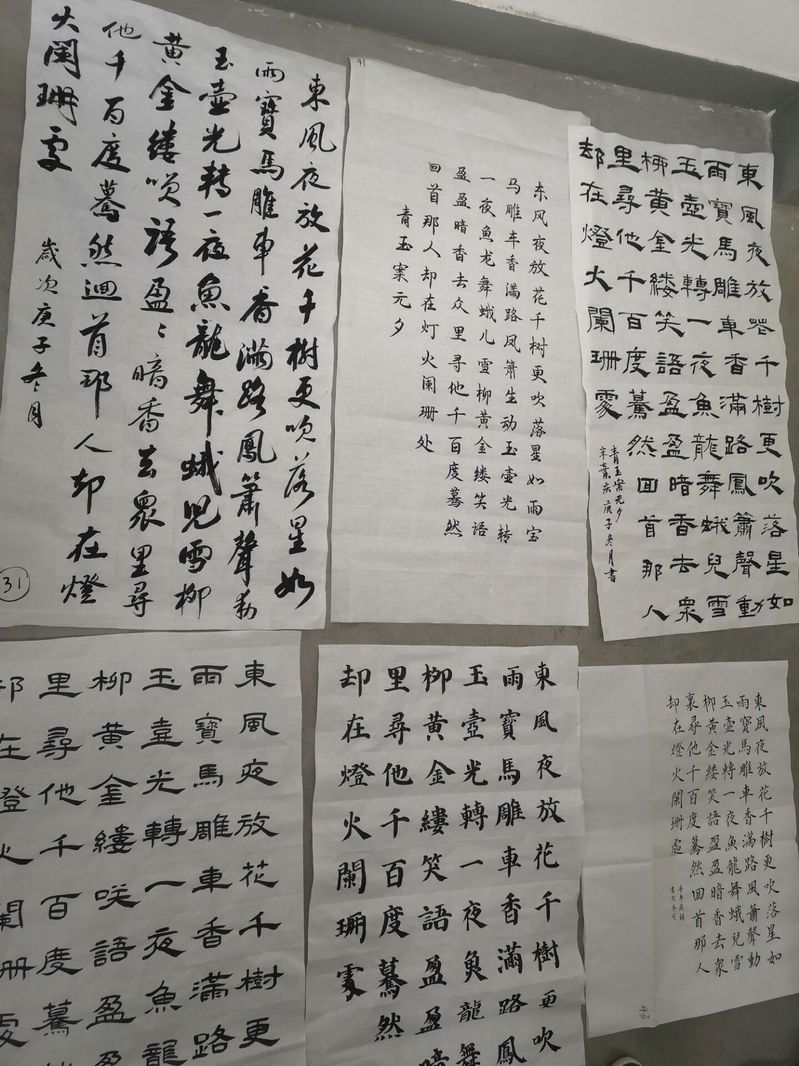 東風夜放花千樹更吹落星如
雨寶馬雕車香滿路鳳簫聲動
玉壺光轉一夜魚龍舞蛾兒雪柳
黃金缕笑語盈〻暗香去衆里尋
他千百度驀然迴首那人却在燈
火闌珊處
歲次庚子冬月
31
41
东风夜放花千树更吹落星如雨宝
马雕车香满路凤箫生动玉壶光转
一夜魚龙舞蛾儿雪柳黄金缕笑语
盈盈暗香去众里寻他千百度蓦然
回首那人却在灯火阑珊处
青玉案元夕
東風夜放花千樹更吹落星如
雨寶馬雕車香滿路鳳簫聲動
玉壺光轉一夜魚龍舞蛾兒雪
柳黃金縷笑語盈盈暗香去衆
里尋他千百度驀然回首那人
却在燈火闌珊處
青玉案元夕
辛棄疾庚子冬月書
東風夜放花千樹更
雨寶馬雕車香滿路
玉壺光轉一夜魚龍
柳黃金縷咲語盈盈
里尋他千百度驀
却在燈火闌珊處
東風夜放花千樹更吹
雨寶馬雕車香滿路鳳
玉壺光轉一夜魚龍舞
柳黃金縷笑語盈盈暗
里尋他千百度驀然
却在燈火闌珊處
東風夜放花千樹更吹落星如
雨寶馬雕車香滿路風蕭聲動
玉壺光轉一夜魚龍舞蛾兒雪
柳黃金縷笑語盈盈暗香去衆
裏尋他千百度驀然回首那人
却在燈火闌珊處
43